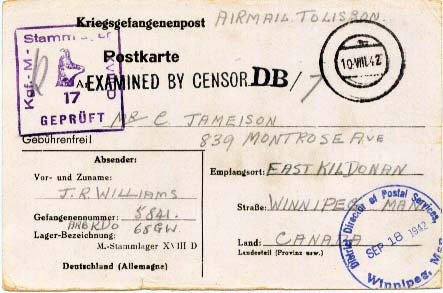 Kriegsgefangenenpost
AIRMAIL TO LISBON.
Postkarte
Stammlager
Kgf.-M-
17
GEPRÜFT
EXAMINED BY CENSOR DB/7
10.VIII.42
MR C. JAMEISON
Gebührenfrei!
839 MONTROSE AVE
Absender:
Vor- und Zuname:
J.R. WILLIAMS
Gefangenennummer: 5841.
ARB KDO 68GW.
Lager-Bezeichnung:
M.-Stammlager XVIII D
Deutschland (Allemagne)
Empfangsort: EAST KILDONAN
Straße: WINNIPEG MAN
Land: CANADA
Landesteil (Provinz usw.)
District Director of Postal Services,
SEP 18 1942
Winnipeg, Man